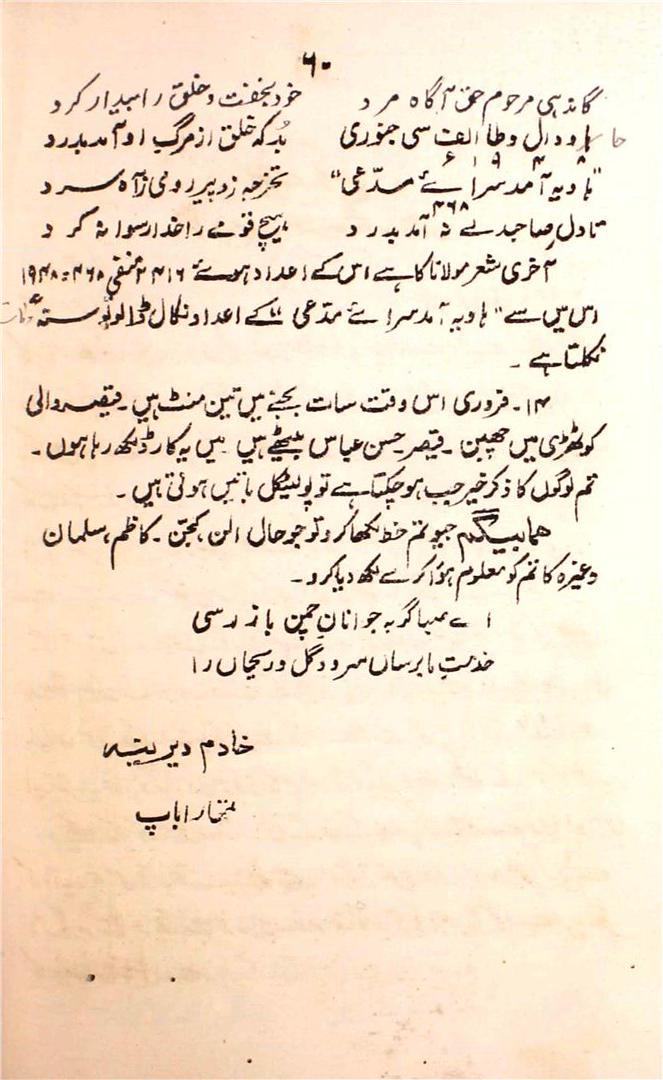 ۶۰
گاندہی مرحوم حق آگاہ مرد خود بخفت و خلق را بیدار کرد
ہا و دال و طا الف سی جنوری بُد کہ خلق از مرگ او آمد بدرد
۸ ۴ ۹ ۱ ۶
"ہاویہ آمد سرائے مدّعی" تخرجہ زد پیر رومی ز آہ سرد
۴۶۸
تا دل صاحبدلے نہ آمد بدرد ہیچ قومے را خدا رسوا نہ کرد
آخری شعر مولانا کا ہے اس کے اعداد ہوئے ۲۴۱۶ منفی ۴۶۸ = ۱۹۴۸
اس میں سے "ہاویہ آمد سرائے مدّعی" کے اعداد نکال ڈالو تو سنہ
نکلتا ہے ۔
۱۴۔ فروری اس وقت سات بجنے میں تین منٹ ہیں ۔ قیصر والی
کوٹھڑی میں چھبن ۔ قیصر ۔ حسن عباس بیٹھے ہیں میں یہ کارڈ لکھ رہا ہوں ۔
تم لوگوں کا ذکر خیر جب ہو چکتا ہے تو پولیٹکل باتیں ہوتی ہیں ۔
ہما بیگم جیو تم خط لکھا کرو تو جو حال الن، کجّن ۔ کاظم، سلمان
وغیرہ کا تم کو معلوم ہوا کرے لکھ دیا کرو ۔
اے صبا گر بہ جوانان چمن باز رسی
خدمتِ ما برساں سرو و گل و ریحاں را
خادم دیرینہ
تمہارا باپ